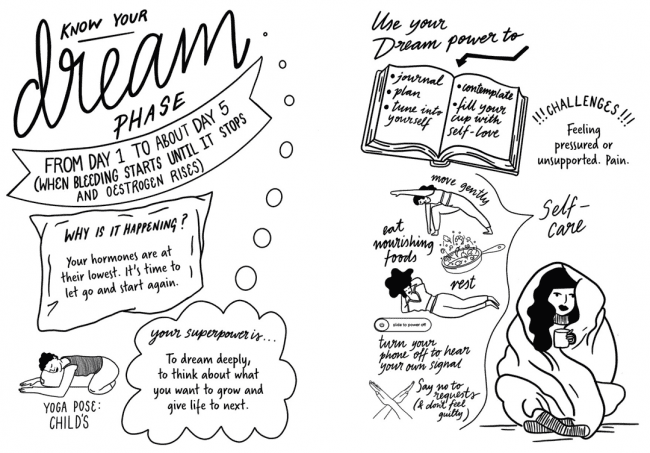 KNOW YOUR
dream
PHASE
FROM DAY 1 TO ABOUT DAY 5
(WHEN BLEEDING STARTS UNTIL IT STOPS
AND OESTROGEN RISES)
WHY IS IT HAPPENING?
Your hormones are at
their lowest. It's time to
let go and start again.
your superpower is...
To dream deeply,
to think about what
you want to grow and
give life to next.
YOGA POSE:
CHILD'S
Use your
Dream power to
• journal
• plan
• tune into
yourself
• contemplate
• fill your
cup with
self-love
!!!CHALLENGES!!!
Feeling
pressured or
unsupported. Pain.
Self-
care
move gently
eat
nourishing
foods
rest
slide to power off
turn your
phone off to hear
your own signal
Say no to
requests
(& don't feel
guilty)